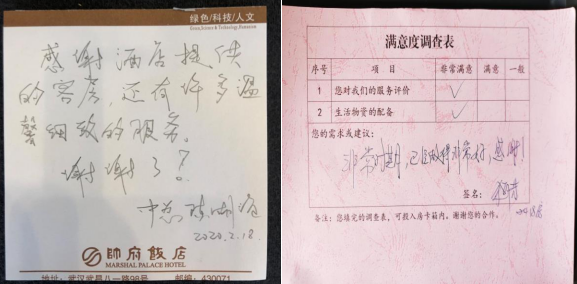 绿色/科技/人文
感谢酒店提供
的客房，还有许多温
馨细致的服务。
谢谢了！
2020.2.18.
帥府飯店
MARSHAL PALACE HOTEL
地址：武汉武昌八一路98号 邮编：430071
满意度调查表
序号 项 目 非常满意 满意 一般
1 您对我们的服务评价 ✓
2 生活物资的配备 ✓
您的需求或建议：
非常时期，已经做得非常好，感谢！
签名：
备注：您填完的调查表，可投入房卡箱内。谢谢您的合作。